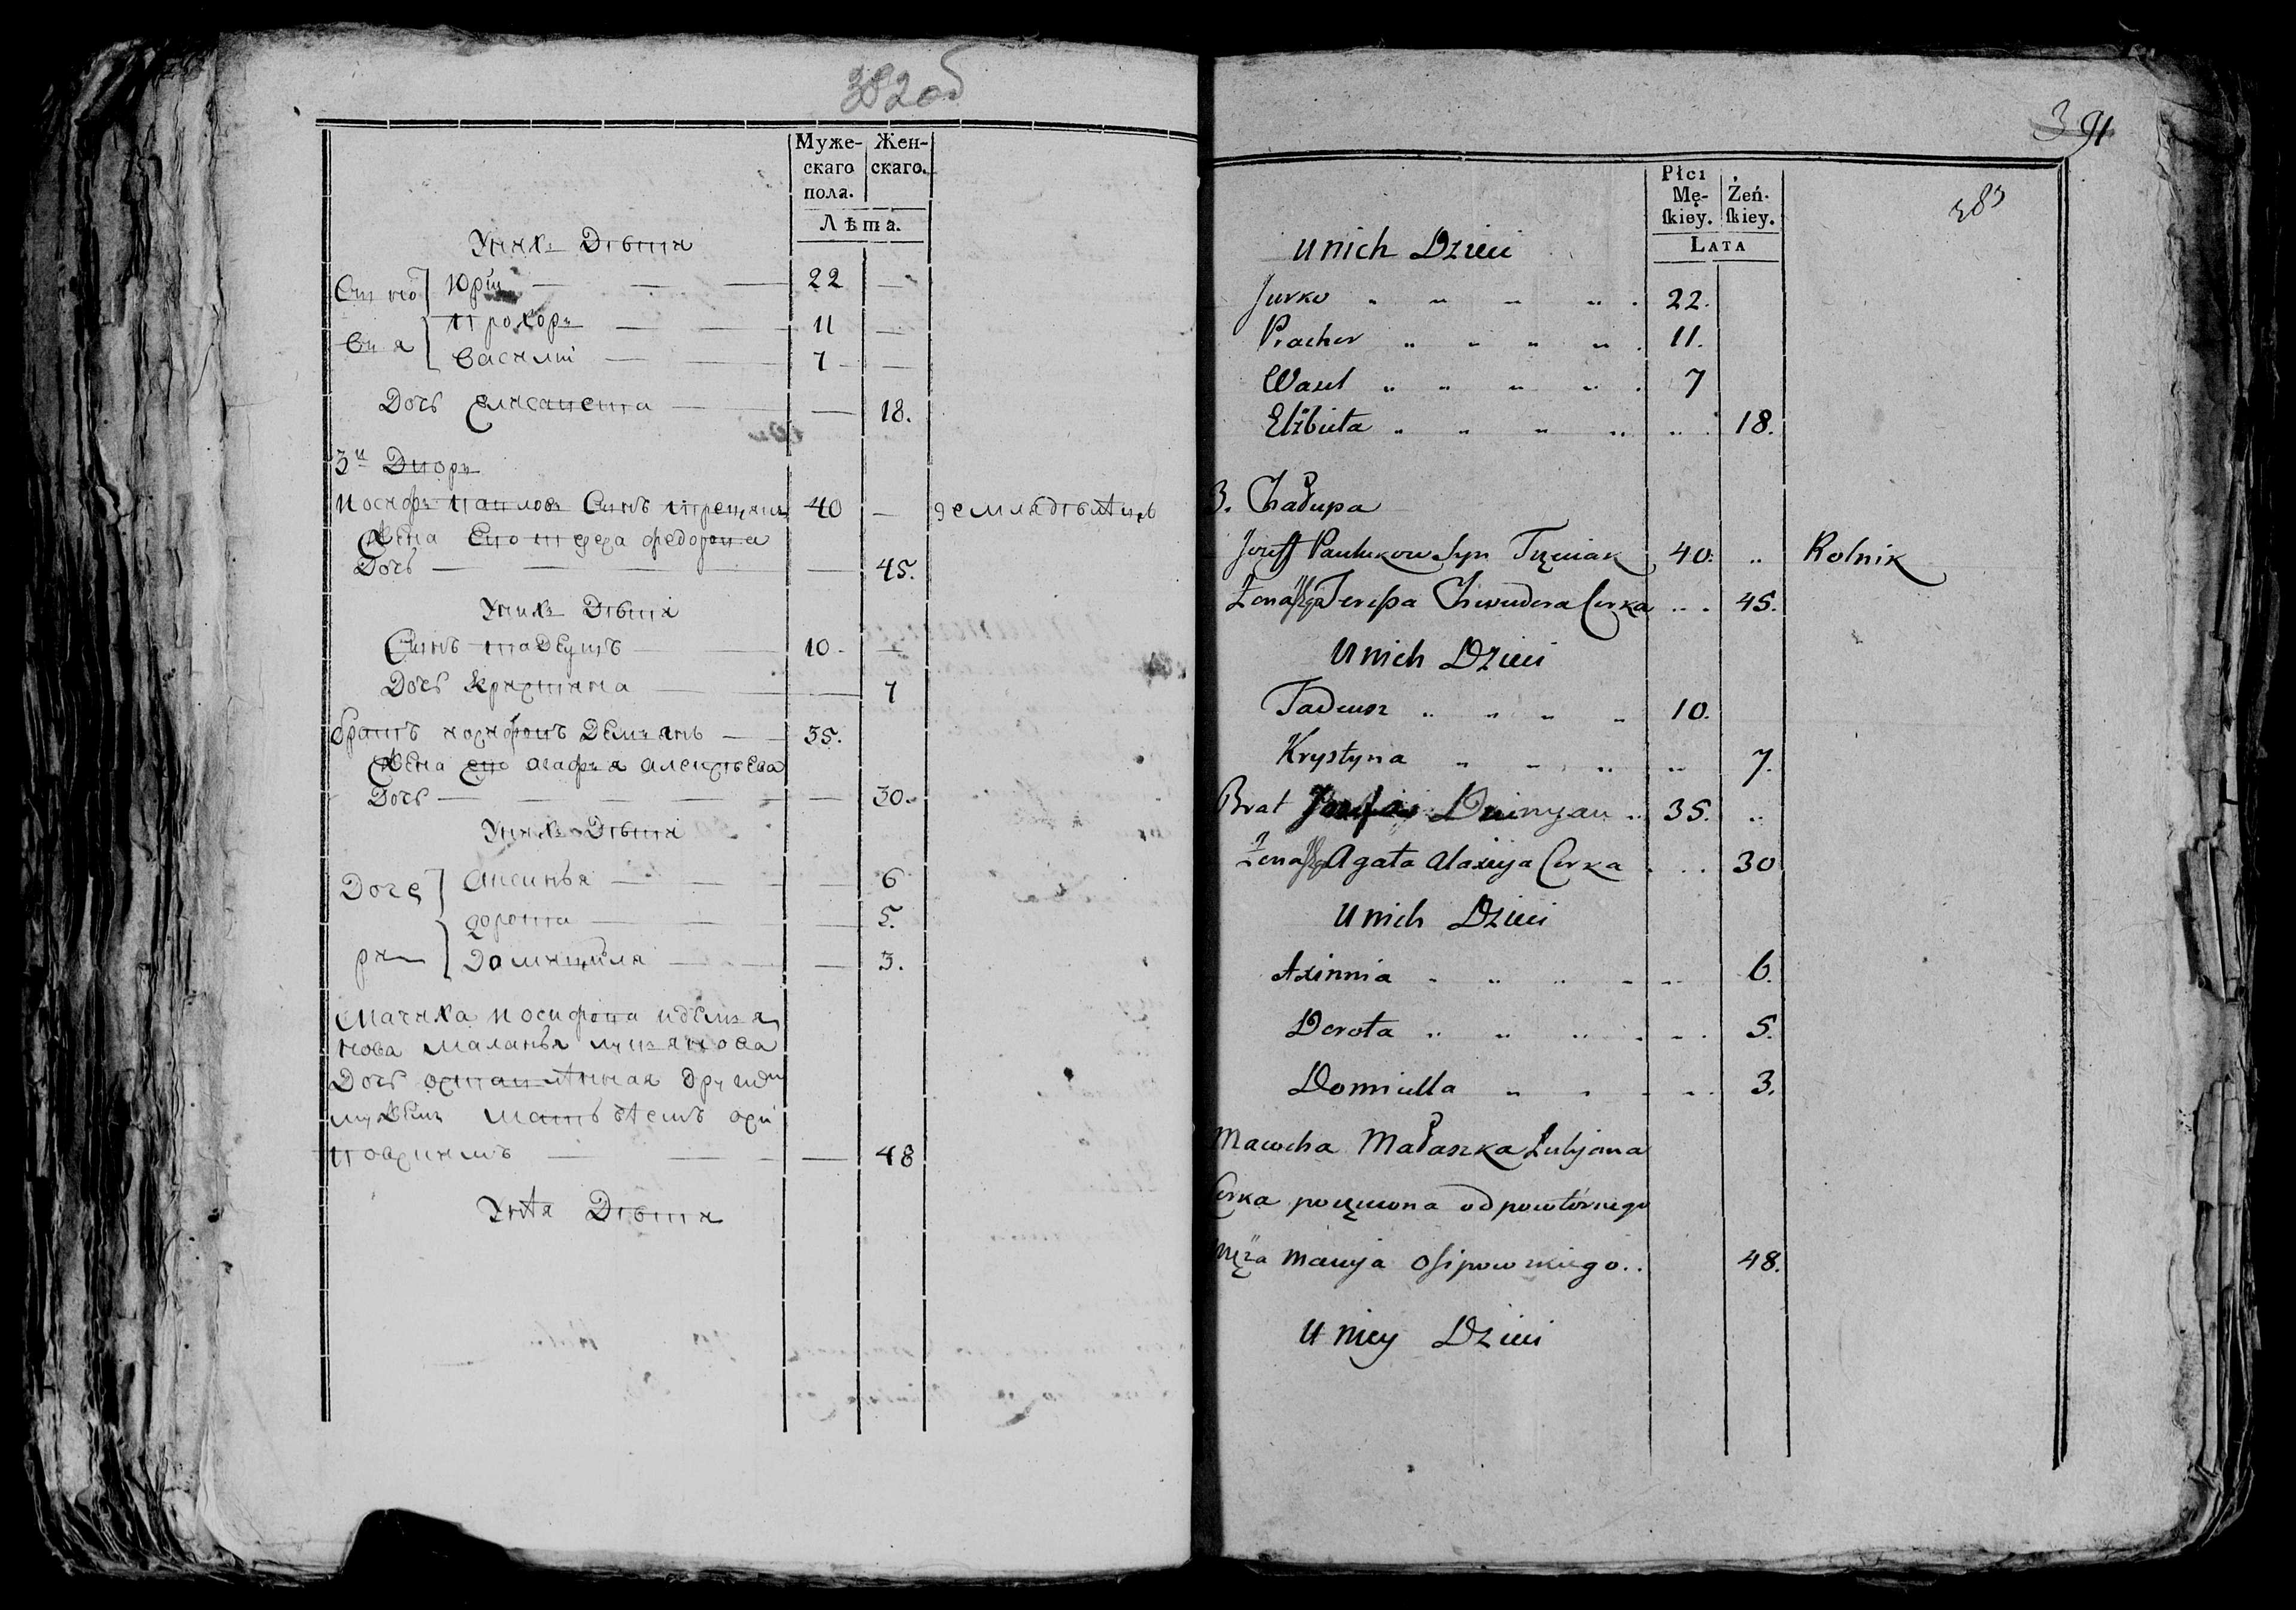 382об
Муже-
скаго
пола.
Жен-
скаго.
Лѣта.
У нихъ Дѣти
Сыно Юрiй 22
Прохоръ 11
вья Василiй 7
Дочь Елисавета 18.
3й Дворъ
Иосифъ Павловъ Сынъ 40 земледѣлецъ
Жена Его Тереза Федорова
Дочь 45.
У нихъ Дѣти
Сынъ Тадеушъ 10
Дочь Кристина 7
Братъ Иосифовъ Демьянъ 35.
Жена его Агафья Алексѣева
Дочь 30.
У нихъ Дѣти
Доче Аксинья 6
Дорота 5.
ри Домицыля 3.
Мачиха Иосифова и Демья
нова Маланья Лукьянова
Дочь оставленная други
мужемъ Матвѣемъ оси
повскимъ 48
У нея Дѣти
391
383
Płci
Mę-
ſkiey.
Żeń-
ſkiey.
LATA
U nich Dzieci
Jurko 22.
Prachor 11.
Wasil 7
Elżbieta 18.
3. Chałupa
Jozeff Pawlukow Syn 40. Rolnik
Żona Jego Tereſsa Chwedora Corka 45.
U nich Dzieci
Tadeusz 10.
Krystyna 7.
Brat 35.
Żona Jego Agata Alaxieja Corka 30
U nich Dzieci
Axinnia 6.
Dorota 5.
Domicella 3.
Macocha Małaszka Łukjana
Corka od powtórnego
Męża Macieja Oſipowskiego 48.
U niey Dzieci